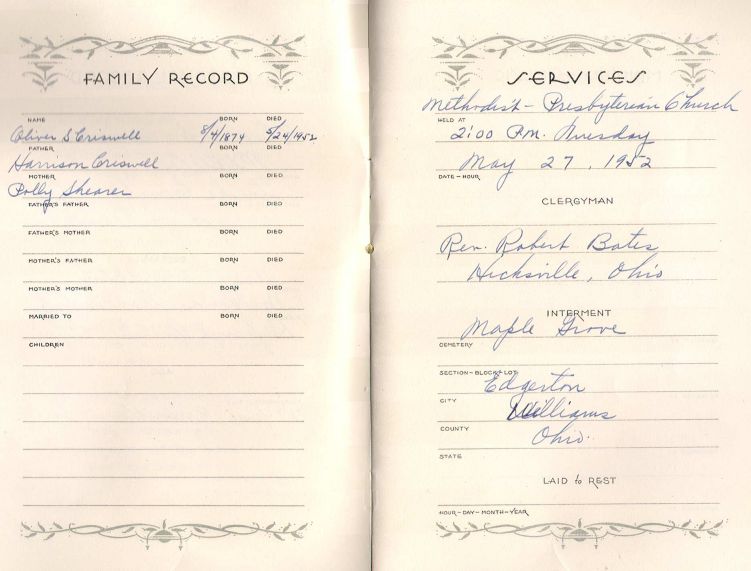 FAMILY RECORD
NAME BORN DIED
Oliver S Criswell 8/4/1874 5/24/1952
FATHER BORN DIED
Harrison Criswell
MOTHER BORN DIED
Polly Shearer
FATHER'S FATHER BORN DIED
FATHER'S MOTHER BORN DIED
MOTHER'S FATHER BORN DIED
MOTHER'S MOTHER BORN DIED
MARRIED TO BORN DIED
CHILDREN
SERVICES
Methodist - Presbyterian Church
HELD AT
2:00 P.M. Tuesday
May 27, 1952
DATE - HOUR
CLERGYMAN
Rev. Robert Bates
Hicksville, Ohio
INTERMENT
Maple Grove
CEMETERY
SECTION - BLOCK - LOT
Edgerton
CITY
Williams
COUNTY
Ohio.
STATE
LAID to REST
HOUR - DAY - MONTH - YEAR